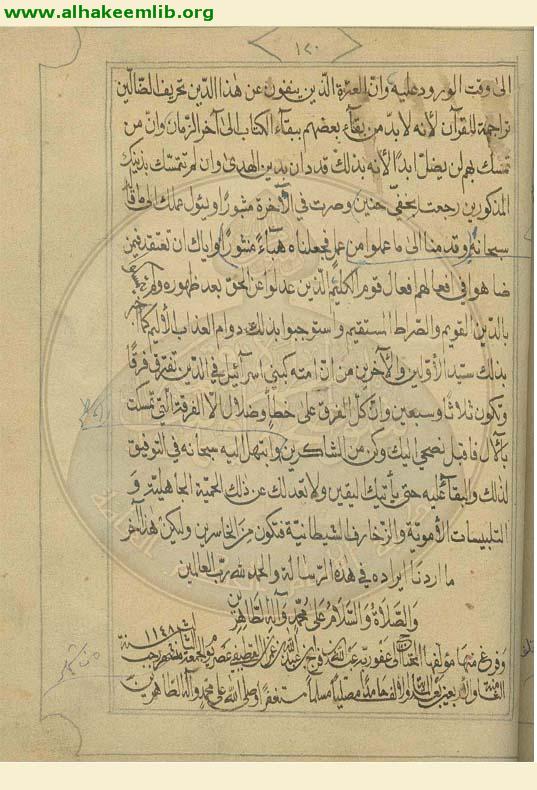 www.alhakeemlib.org
١٢٠
الى وقت الورود عليه وان العترة الذين ينفون عن هذا الدين تحريف الضالين
تراجمة للقرآن لأنه لابد من بقاء بعضهم ببقاء الكتاب الى آخر الزمان وان من
تمسك بهم لن يضل ابدا لأنه بذلك قد دان بدين الهدى وان لم تتمسك بذينك
المذكورين رجعت بخفي حنين وصرت في الآخرة مثبورا ويئول عملك الى ما قال
سبحانه وقدمنا الى ما عملوا من عمل فجعلناه هباء منثورا واياك ان تعتقد فيمن
ضاهوا في افعالهم افعال قوم الكليم الذين عدلوا عن الحق بعد ظهوره
بالدين القويم والصراط المستقيم واستوجبوا بذلك دوام العذاب الأليم كما
بذلك سيد الأولين والآخرين من ان امته كبني اسرآئيل في الدين تفترق فرقا
وتكون ثلاثا وسبعين وان كل الفرق على خطأ وضلال الا الفرقة التي تمسكت
بالآل فاقبل نصحي اليك وكن من الشاكرين وابتهل اليه سبحانه في التوفيق
لذلك والبقآء عليه حتى يأتيك اليقين ولا تعدلك عن ذلك الحمية الجاهلية و
التلبيسات الأموية والزخارف الشيطانية فتكون من الخاسرين وليكن هذا آخر
ما اردنا ايراده في هذه الرسالة والحمد لله رب العالمين
والصلاة والسلام على محمد وآله الطاهرين
وفرغ منها مؤلفها عفو ربه عبد الله بن عصر يوم الجمعة شهر رجب سنة ١١٤٨
حامدا مصليا مسلما مستغفرا وصلى الله على محمد وآله الطاهرين